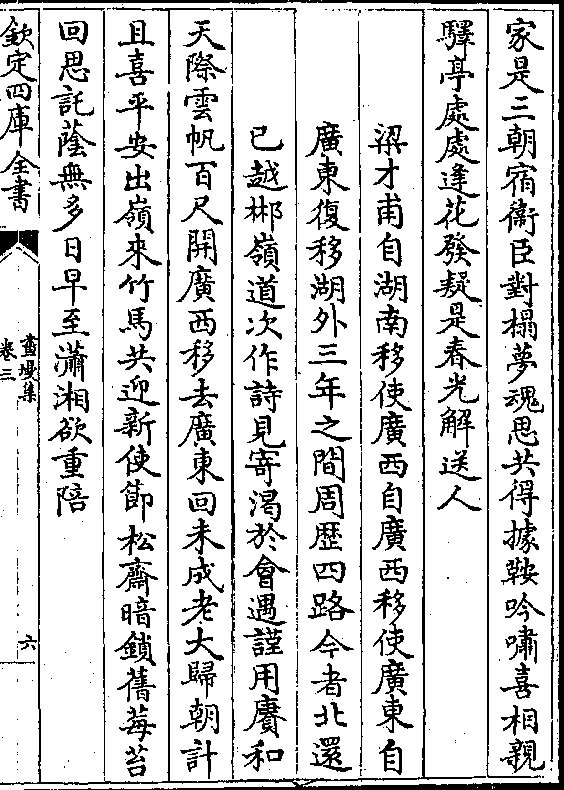 家是三朝宿衞臣對榻夢魂思共得據鞍吟嘯喜相親
驛亭處處逢花發疑是春光解送人
梁才甫自湖南移使廣西自廣西移使廣東自
廣東復移湖外三年之間周歴四路今者北還
已越郴嶺道次作詩見寄渴於會遇謹用賡和
天際雲帆百尺開廣西移去廣東回未成老大歸朝計
且喜平安出嶺來竹馬共迎新使節松齋暗鎖舊莓苔
回思託蔭無多日早至瀟湘欲重陪
欽定四庫全書
畫墁集
卷三
六